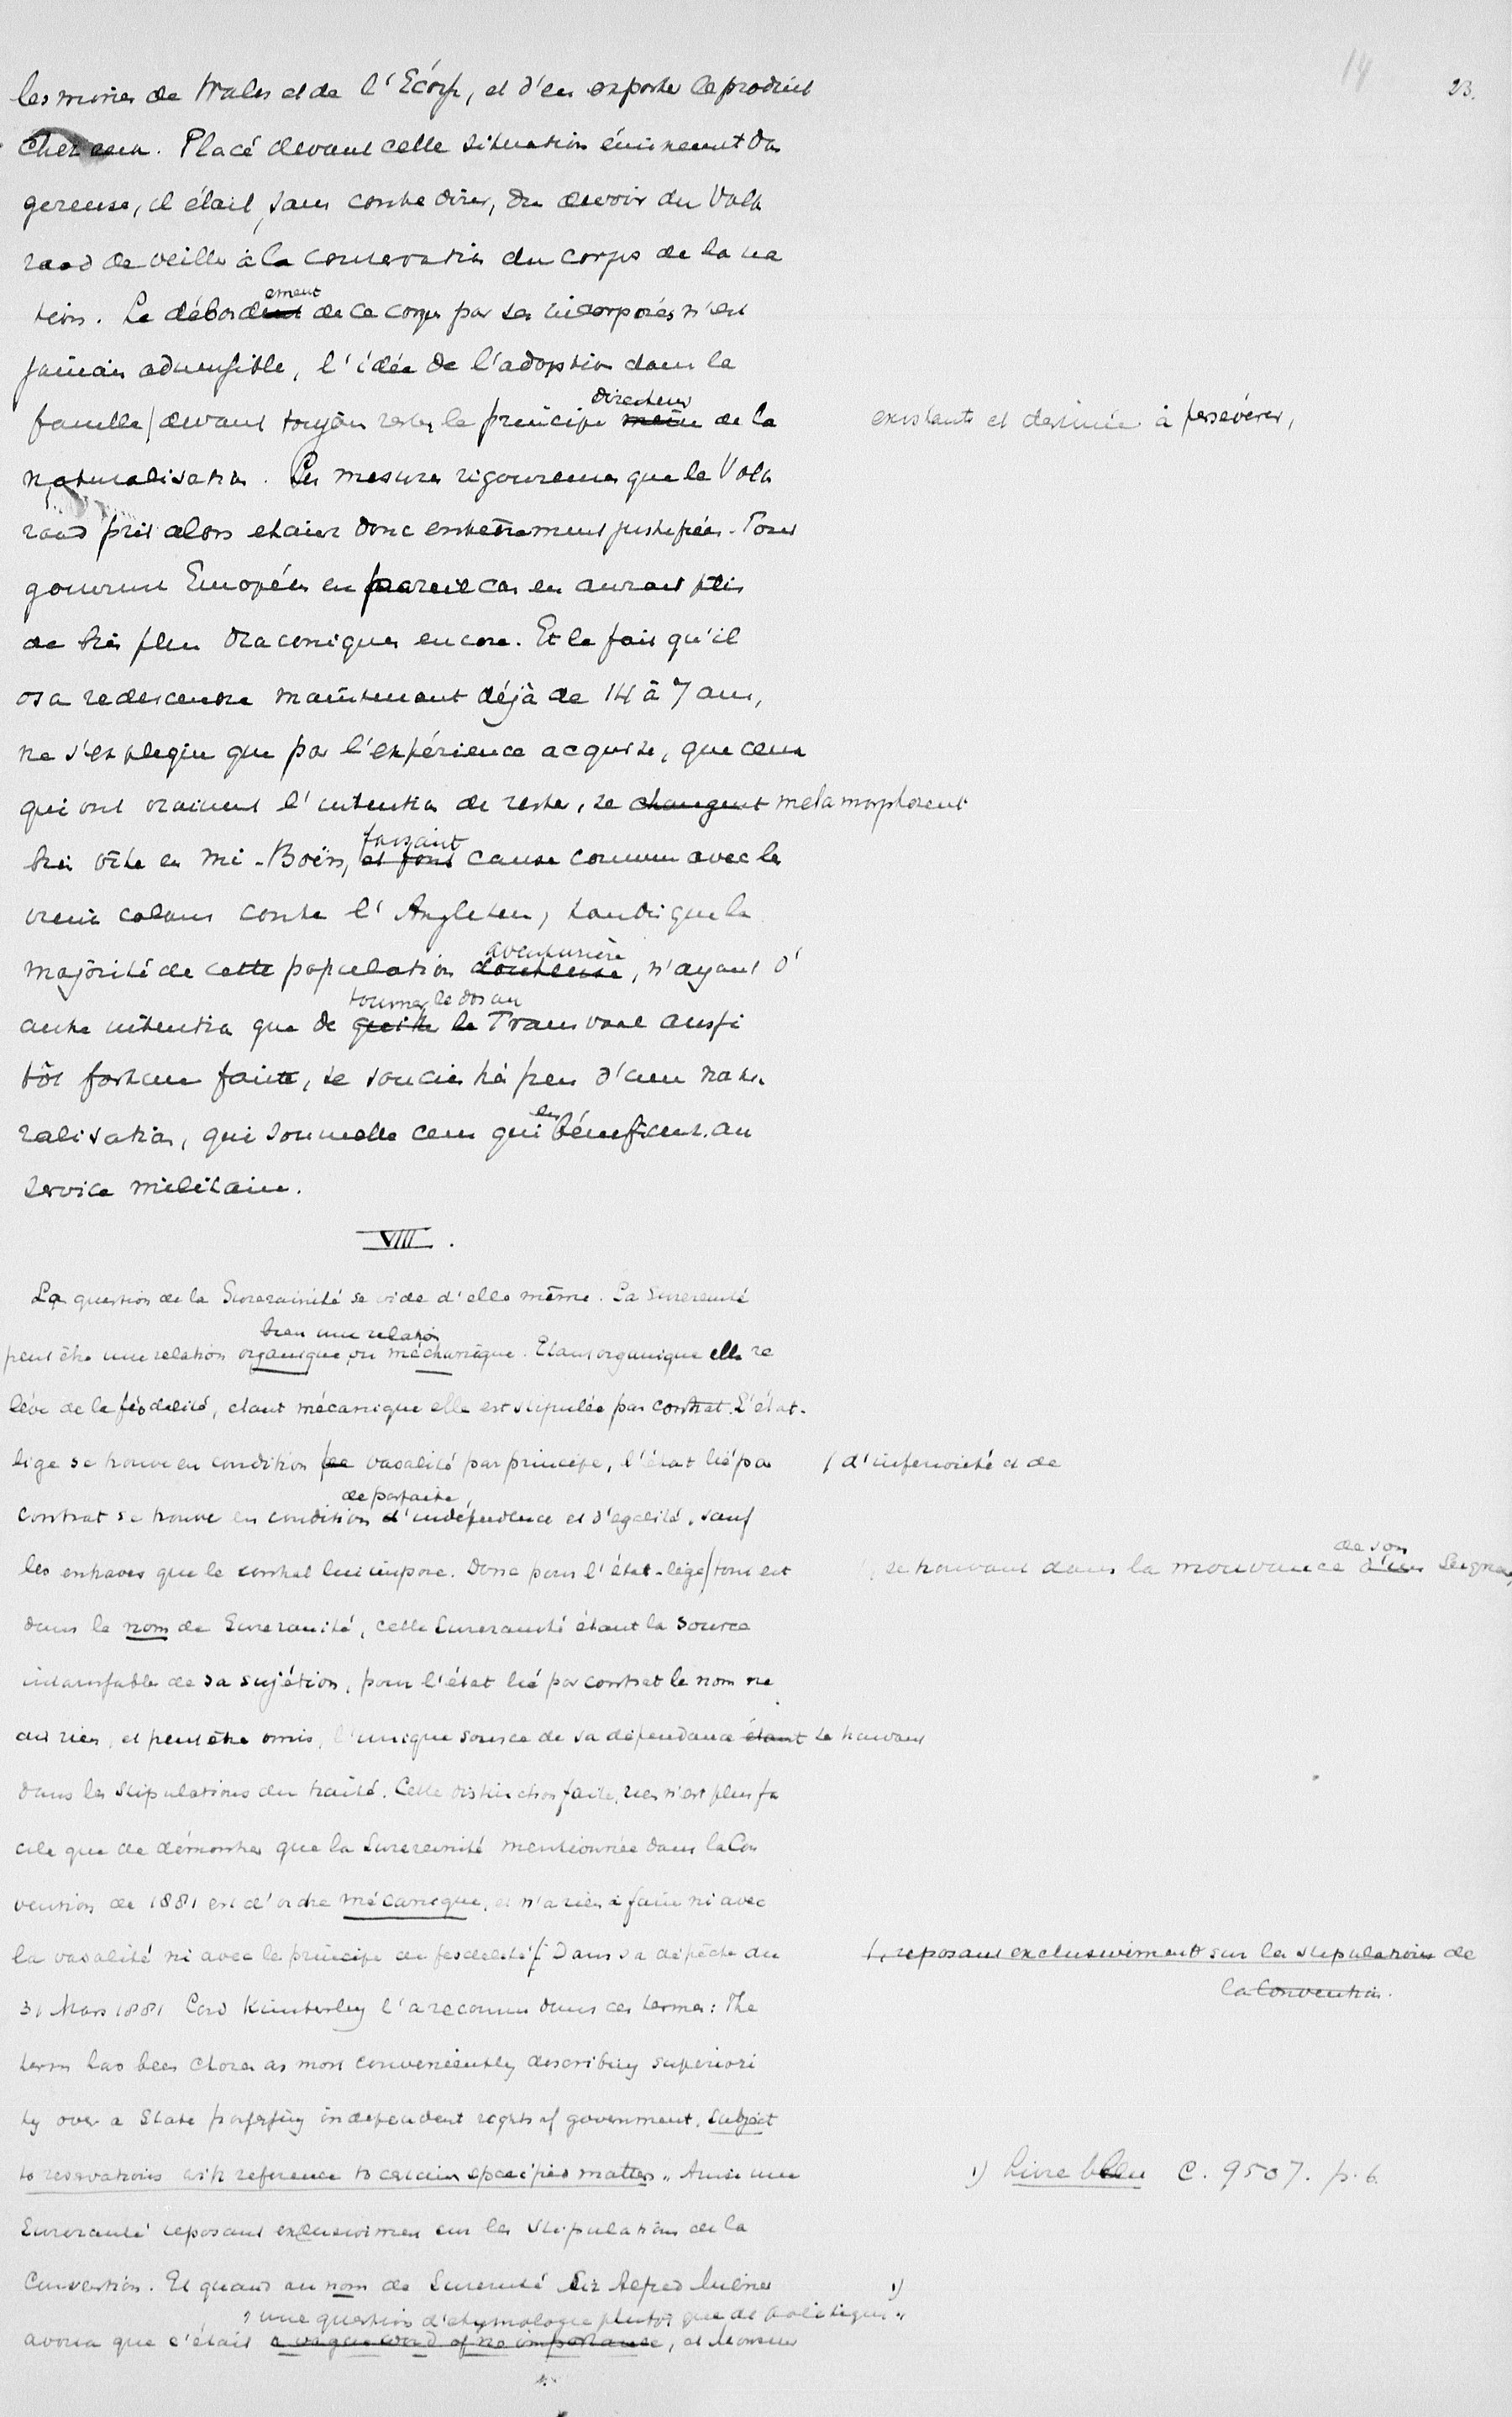 14
23.
les mines de Wales et de l'Ecosse, et d'en exporter le produit
chez eux. Placé devant cette situation éminemment dan
gereuse, il était, sans contredire, du devoir du Volks
raad de veiller à la conservation du corps de la na
tion. Le débordement de ce corps par ses incorporés n'est
jamais admissible, l'idée de l'adoption dans la
famille / devant toujours rester le principe directeur même de la
existante et destinée à persévérer,
naturalisation. Les mesures rigoureuses que le Volks
raad prit alors étaient donc entièrement justifiées. Tout
gouvernement Européen en pareil cas en aurait pris
de bien plus draconiques encore. Et le fait qu'il
osa redescendre maintenant déjà de 14 à 7 ans,
ne s'explique que par l'expérience acquise, que ceux
qui ont vraiment l'intention de rester, se changent metamorphosent
bien vite en mi-Boërs, et font faisant cause commune avec les
vieux colons contre l'Angleterre, tandis que la
majorité de cette population douteuse aventurière, n'ayant d'
autre intention que de quitter le tourner le dos au Transvaal aussi
tôt fortune faite, se soucie très peu d'une natu
ralisation, qui soumette ceux qui en bénéficient au
service militaire.
VIII.
La question de la Suzerainité se vide d'elle même. La Suzerainité
peut être une relation organique, ou bien une relation méchanique. Etant organique elle re
lève de la féodalité, étant mécanique elle est stipulée par contrat. L'état-
lige se trouve en condition / de vasalité par principe, l'état lié par
/ d'infériorité et de
contrat se trouve en condition de parfaite d'indépendence et d'égalité, sauf
les entraves que le contrat lui impose. Donc pour l'état-lige / tout est
/ se trouvant dans la mouvance d'un de son Seigneur,
dans le nom de Suzeraineté, cette Suzeraineté étant la source
intarissable de sa sujétion, pour l'état lié par contrat le nom ne
dit rien, et peut être omis, l'unique source de sa dépendance étant se trouvant
dans les stipulations du traité. Cette distinction faite, rien n'est plus fa
cile que de démontrer que la Suzerainité mentionnée dans la Con
vention de 1881 est d'ordre mécanique, et n'a rien à faire ni avec
la vasalité ni avec le principe de féodalité /. Dans sa dépêche du
/, reposant exclusivement sur les stipulations de
la Convention.
31 Mars 1881 Lord Kimberley l'a reconnu dans ces termes: The
term has been chosen as most conveniently describing superiori
ty over a State possessing independent rights of government, subject
to reservations with reference to certain specified matters". Ainsi une
1) Livre bleu C. 9507. p. 6.
Suzerainté reposant exclusivement sur les stipulations de la
Convention. Et quand au nom de Suzerainté Sir Alfred Milner
avoua que c'était a vague word of no importance "une question d'étymologie plutôt que de politique" 1), et Monsieur